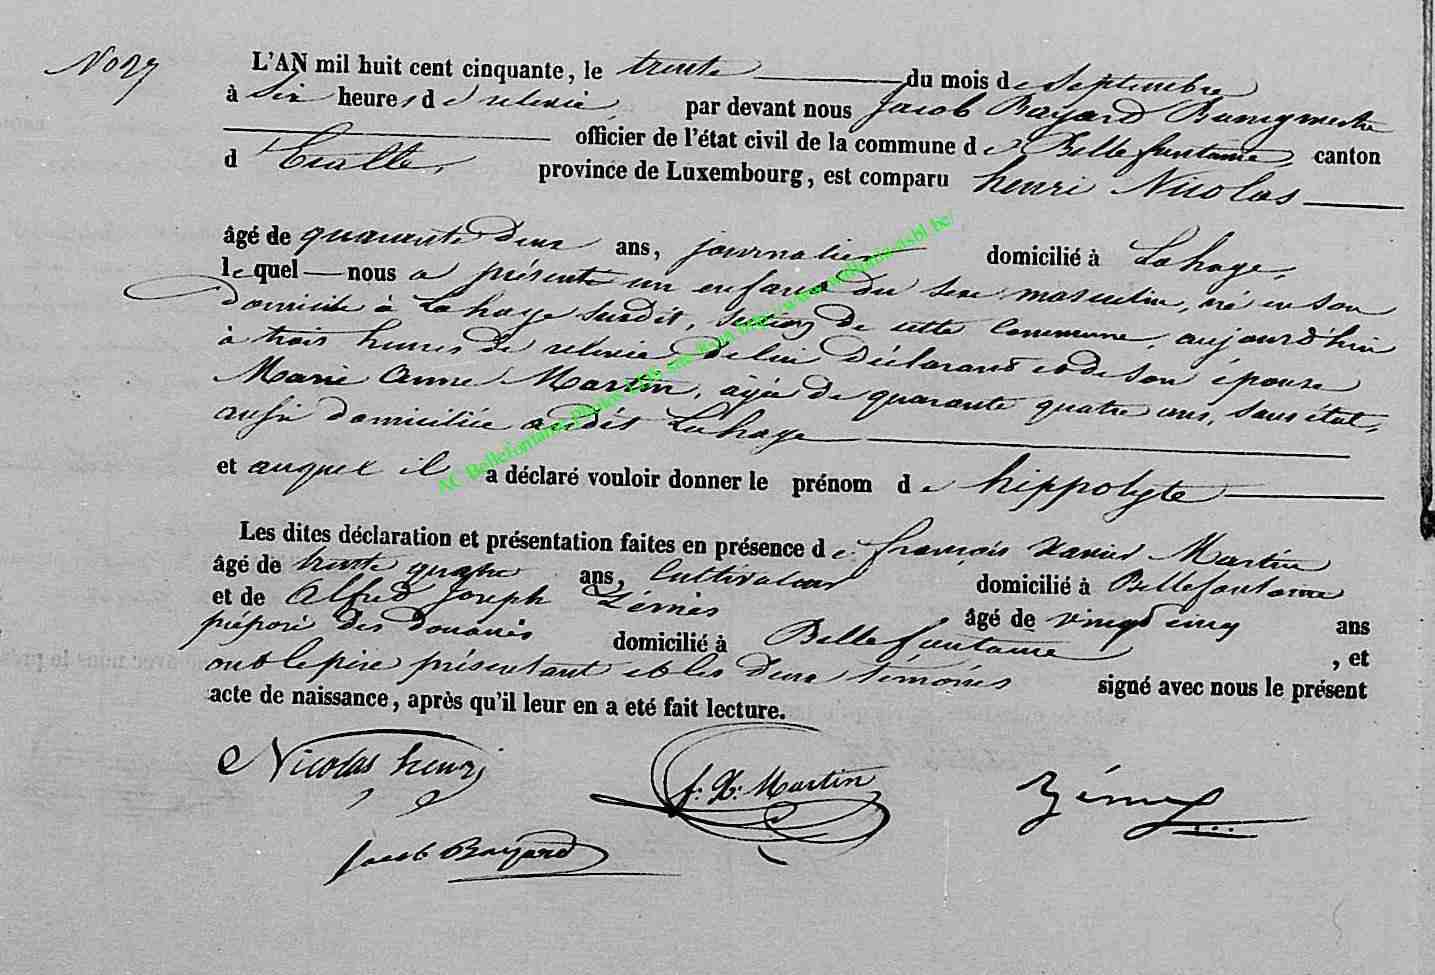 No 27
L'AN mil huit cent cinquante, le trente du mois de Septembre
à Six heures de relevée par devant nous Jacob Bayard Bourgmestre
officier de l'état civil de la commune de Bellefontaine canton
d'Etalle, province de Luxembourg, est comparu henri Nicolas
âgé de quarante deux ans, journalier domicilié à Lahage,
lequel nous a présenté un enfant du sexe masculin, né en son
domicile à Lahage susdit, section de cette Commune, aujourd'hui
à trois heures de relevée de lui Déclarant et de son épouse
Marie Anne Martin, âgée de quarante quatre ans, sans état,
aussi domiciliée audit Lahage
et auquel il a déclaré vouloir donner le prénom de hippolyte
Les dites déclaration et présentation faites en présence de françois Xavier Martin
âgé de trente quatre ans, Cultivateur domicilié à Bellefontaine
et de Alfred Joseph âgé de vingt cinq ans
préposé des douanes domicilié à Bellefontaine, et
ont le père présentant et les deux témoins signé avec nous le présent
acte de naissance, après qu'il leur en a eté fait lecture.
Nicolas henri
f. X. Martin
Jacob Bayard
AC Bellefontaine, Photos LDS sur le site http://www.asbl.be/